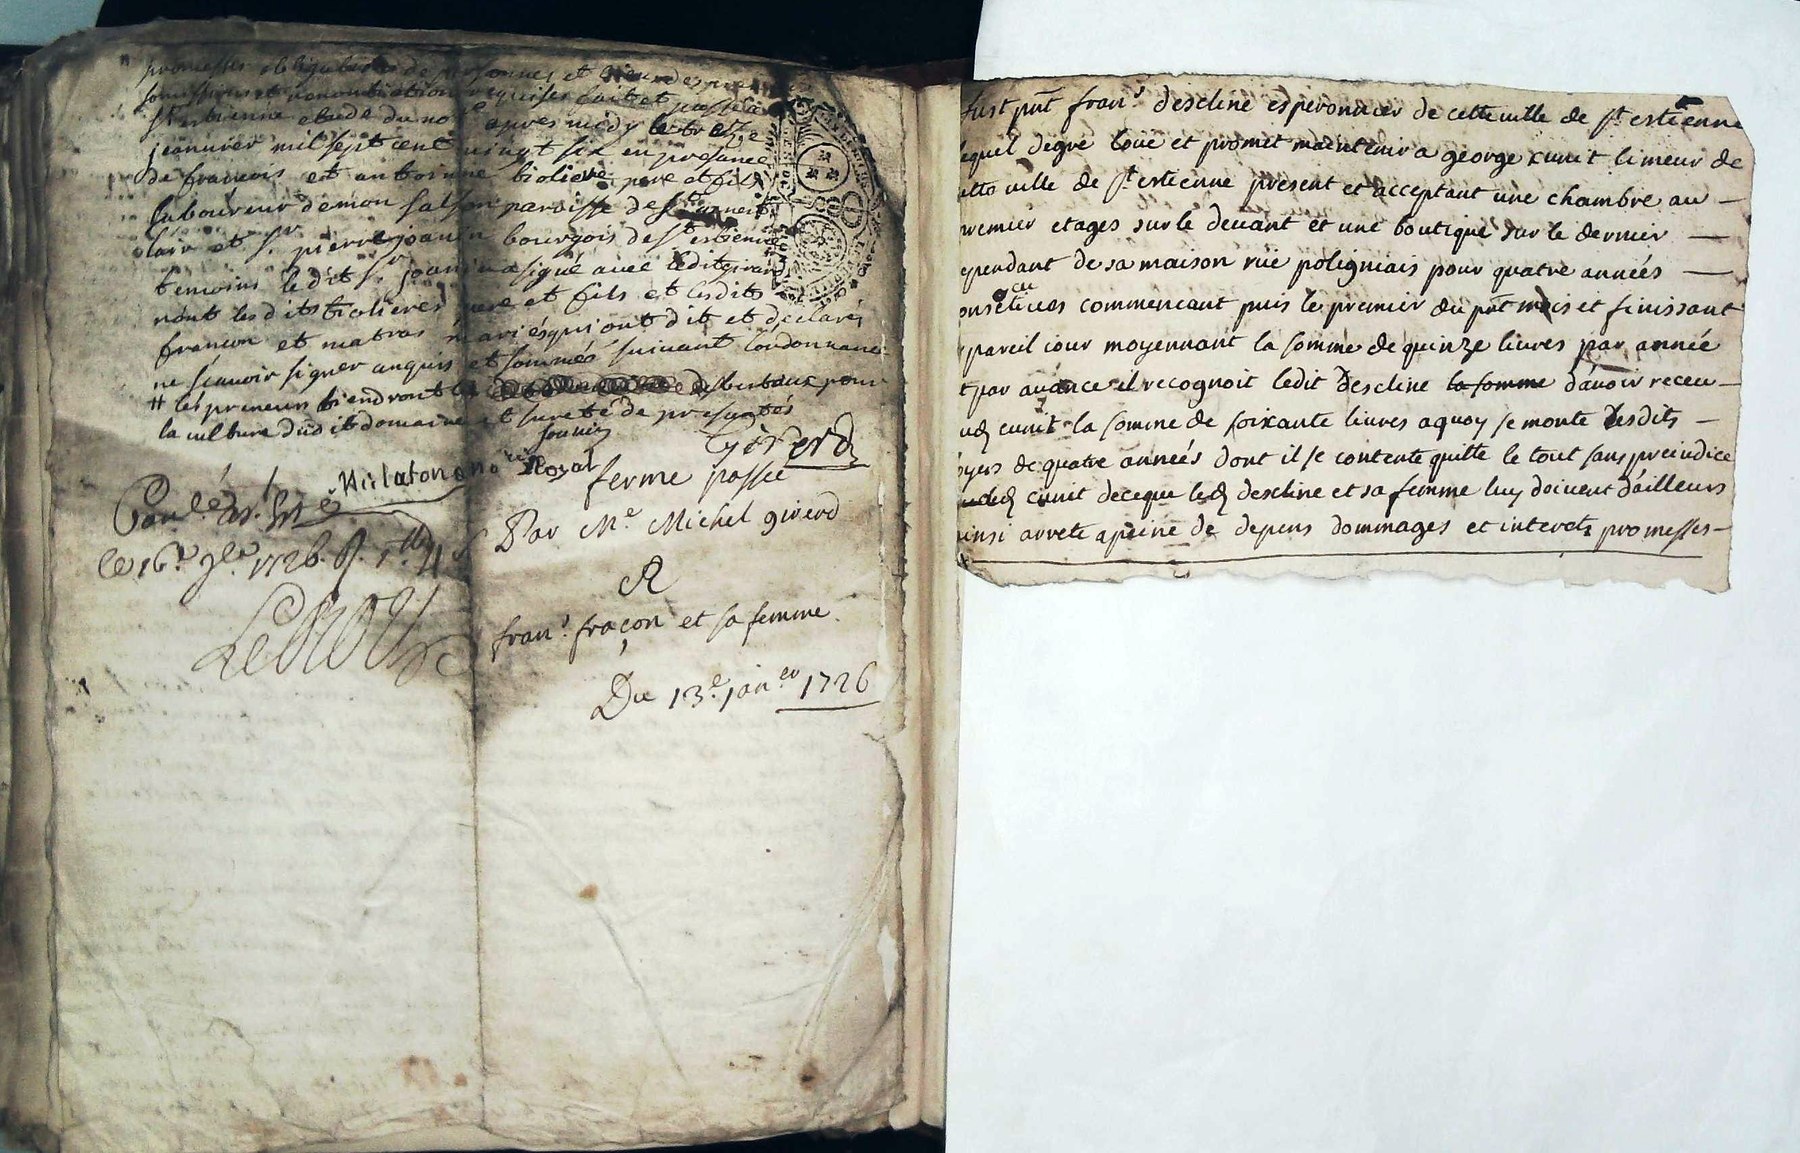 promesses obligations de personnes et biens
soumissions et renontiations requises fait et passé a
St estienne etude du nore apres midy le treize
jeanvier mil sept cent vingt six en presance
de francois et antoinne tioliere pere et fils
laboureur de mon salson paroisse de St
lair et Sr pierre joanin bourgois de St estienne
temoins ledit Sr joanin a signé avec ledit girard
nont lesdits tiolieres pere et fils et lesdits
francon et matras mariés qui ont dit et declaré
ne scavoir signer anquis et sommés suivant lordonnance
# les preneurs tiendront pour
la culture dudit domaine et sureté de presantés
joanin
Girerd
Royal
ferme passée
Par Me Michel girerd
A
fran.s fraçon et sa femme
Du 13e janer 1726
le 16e 1726
fust pnt fran.s descline esperonnier de cette ville de St estienne
lequel de gré loue et promet maintenir a george cunit limeur de
cette ville de St estienne present et acceptant une chambre au –
premier etages sur le devant et une boutique sur le dernier —
dependant de sa maison rüe polignais pour quatre années —
consecutives commencant puis le premier du pnt mois et finissant
a pareil iour moyennant la somme de quinze livres par année
et par avance il recognoit ledit descline la somme davoir receu –
dud cunit la somme de soixante livres a quoy se monte lesdits –
loyers de quatre années dont il se contente quitte le tout sans preiudice
audd cunit de ce que led descline et sa femme luy doivent dailleurs
ainsi arrete a peine de depens dommages et interets promesses –